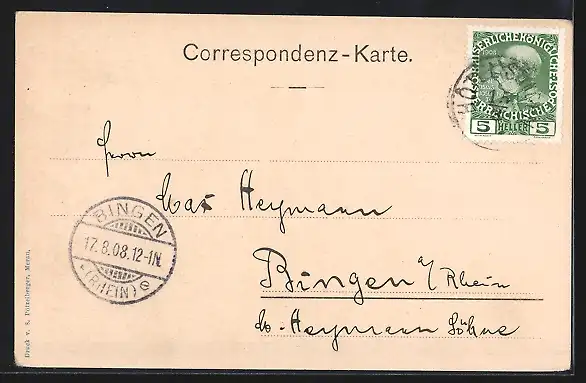 Correspondenz-Karte.
KAISERLICHE KÖNIGLICHE
1908
ÖSTERREICHISCHE POST
5 HELLER 5
Herrn
Max Heymann
BINGEN
17.8.08.12-1N.
(RHEIN) e
Bingen a/Rhein
Heymann Söhne
Druck v. S. Pötzelberger, Meran.